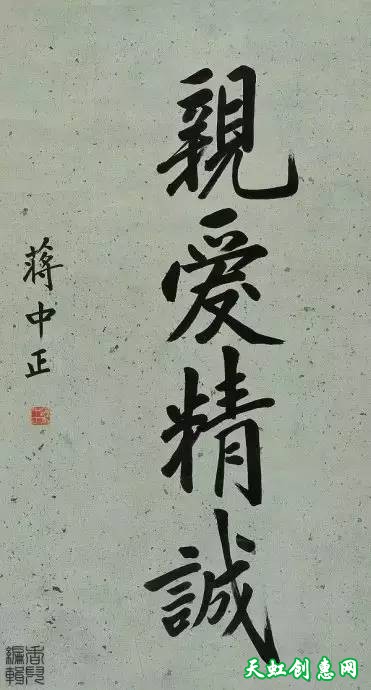 親愛精誠
蔣中正
天虹创意网